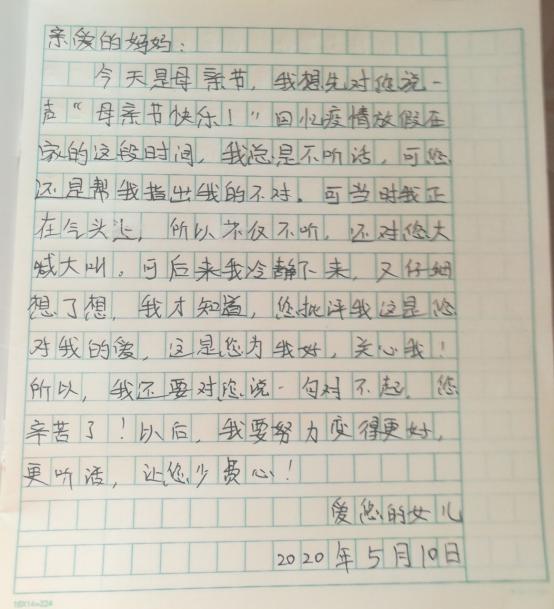 亲爱的妈妈：
今天是母亲节，我想先对您说一
声“母亲节快乐！”回忆疫情放假在
家的这段时间，我总是不听话，可您
还是帮我指出我的不对。可当时我正
在气头上，所以不仅不听，还对您大
喊大叫。可后来我冷静下来，又仔细
想了想，我才知道，您批评我这是您
对我的爱，这是您为我好，关心我！
所以，我还要对您说一句对不起，您
辛苦了！以后，我要努力变得更好，
更听话，让您少费心！
爱您的女儿
2020年5月10日
16X14=224